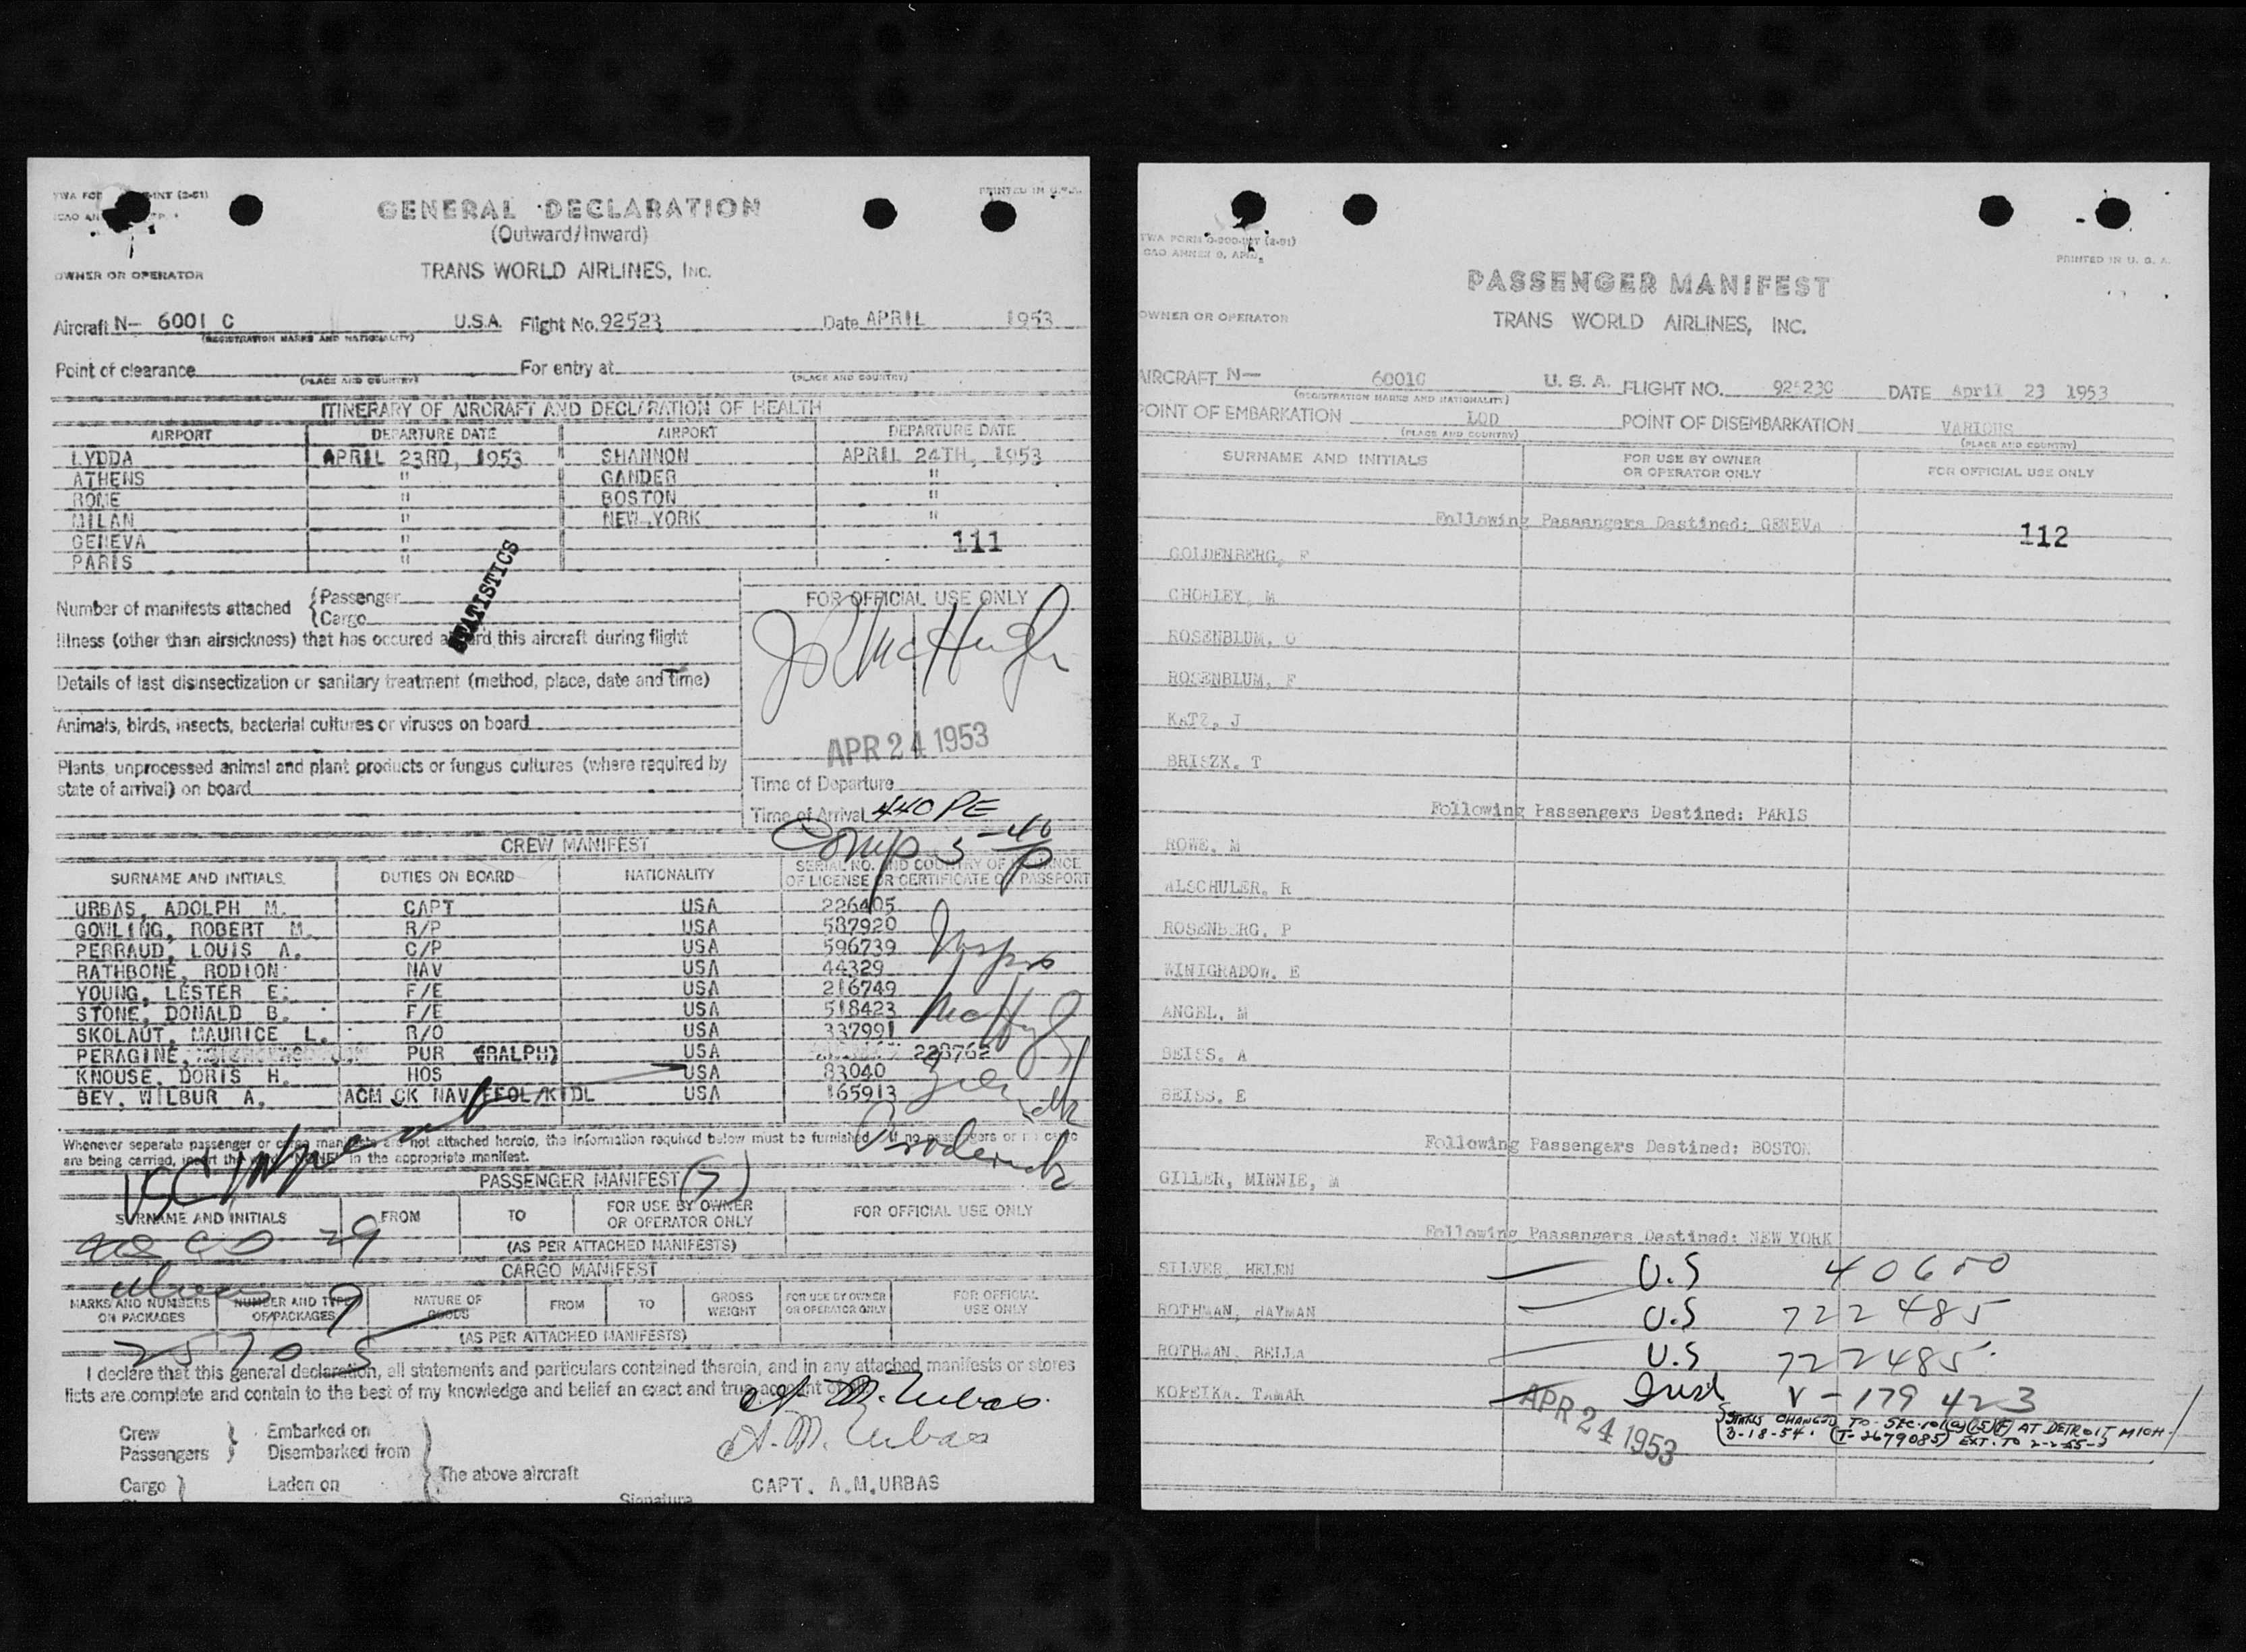 GENERAL DECLARATION
(Outward/Inward)
PRINTED IN U.S.A.
OWNER OR OPERATOR
TRANS WORLD AIRLINES, Inc.
Aircraft N- 6001 C U.S.A. Flight No. 92523 Date APRIL 1953
(REGISTRATION MARKS AND NATIONALITY)
Point of clearance For entry at
(PLACE AND COUNTRY) (PLACE AND COUNTRY)
ITINERARY OF AIRCRAFT AND DECLARATION OF HEALTH
AIRPORT DEPARTURE DATE AIRPORT DEPARTURE DATE
LYDDA APRIL 23RD, 1953 SHANNON APRIL 24TH, 1953
ATHENS " GANDER "
ROME " BOSTON "
MILAN " NEW YORK "
GENEVA " 111
PARIS "
STATISTICS
Number of manifests attached {Passenger
{Cargo
Illness (other than airsickness) that has occured aboard this aircraft during flight
Details of last disinsectization or sanitary treatment (method, place, date and time)
Animals, birds, insects, bacterial cultures or viruses on board
Plants, unprocessed animal and plant products or fungus cultures (where required by
state of arrival) on board
FOR OFFICIAL USE ONLY
APR 24 1953
Time of Departure
Time of Arrival 440 PE
Comp 5-40 P
CREW MANIFEST
SURNAME AND INITIALS DUTIES ON BOARD NATIONALITY SERIAL NO. AND COUNTRY OF ISSUANCE
OF LICENSE OR CERTIFICATE OR PASSPORT
URBAS, ADOLPH M. CAPT USA 226405
GOWLING, ROBERT M. R/P USA 587920
PERRAUD, LOUIS A. C/P USA 596739
RATHBONE, RODION NAV USA 44329
YOUNG, LESTER E. F/E USA 216749
STONE, DONALD B. F/E USA 518423
SKOLAUT, MAURICE L. R/O USA 337991
PERAGINE, PUR (RALPH) USA 228762
KNOUSE, DORIS H. HOS USA 83040
BEY, WILBUR A. ACM CK NAV USA 165913
Whenever seperate passenger or cargo manifests are not attached hereto, the information required below must be furnished. If no passengers or no cargo
are being carried, insert the word "NONE" in the appropriate manifest.
PASSENGER MANIFEST (7)
SURNAME AND INITIALS FROM TO FOR USE BY OWNER
OR OPERATOR ONLY FOR OFFICIAL USE ONLY
(AS PER ATTACHED MANIFESTS)
29
CARGO MANIFEST
MARKS AND NUMBERS
ON PACKAGES NUMBER AND TYPE
OF PACKAGES NATURE OF
GOODS FROM TO GROSS
WEIGHT FOR USE BY OWNER
OR OPERATOR ONLY FOR OFFICIAL
USE ONLY
Aliens 9
(AS PER ATTACHED MANIFESTS)
I declare that this general declaration, all statements and particulars contained therein, and in any attached manifests or stores
lists are complete and contain to the best of my knowledge and belief an exact and true account of
A. M. Urbas
A. M. Urbas
Crew } Embarked on
Passengers } Disembarked from
The above aircraft
Cargo } Laden on
Signature
CAPT. A.M.URBAS
TWA FORM (2-51)
PRINTED IN U. S. A.
PASSENGER MANIFEST
OWNER OR OPERATOR
TRANS WORLD AIRLINES, INC.
AIRCRAFT N- 6001C U. S. A. FLIGHT NO. 92523C DATE April 23 1953
(REGISTRATION MARKS AND NATIONALITY)
POINT OF EMBARKATION LOD POINT OF DISEMBARKATION VARIOUS
(PLACE AND COUNTRY) (PLACE AND COUNTRY)
SURNAME AND INITIALS FOR USE BY OWNER
OR OPERATOR ONLY FOR OFFICIAL USE ONLY
Following Passengers Destined: GENEVA
112
GOLDENBERG, F
CHORLEY, M
ROSENBLUM, O
ROSENBLUM, F
KATZ, J
BRISZK, T
Following Passengers Destined: PARIS
ROWE, M
ALSCHULER, R
ROSENBERG, P
WINIGRADOW, E
ANGEL, M
BEISS, A
BEISS, E
Following Passengers Destined: BOSTON
GILLER, MINNIE, M
Following Passengers Destined: NEW YORK
SILVER, HELEN U.S 40600
ROTHMAN, HAYMAN U.S 722485
ROTHMAN, BELLA U.S 722485
KOPEIKA, TAMAR V-179423
APR 24 1953
STATUS CHANGED TO SEC. 101(a)(15)(F) AT DETROIT MICH.
3-18-54. (T-2679085) EXT. TO 2-2-55